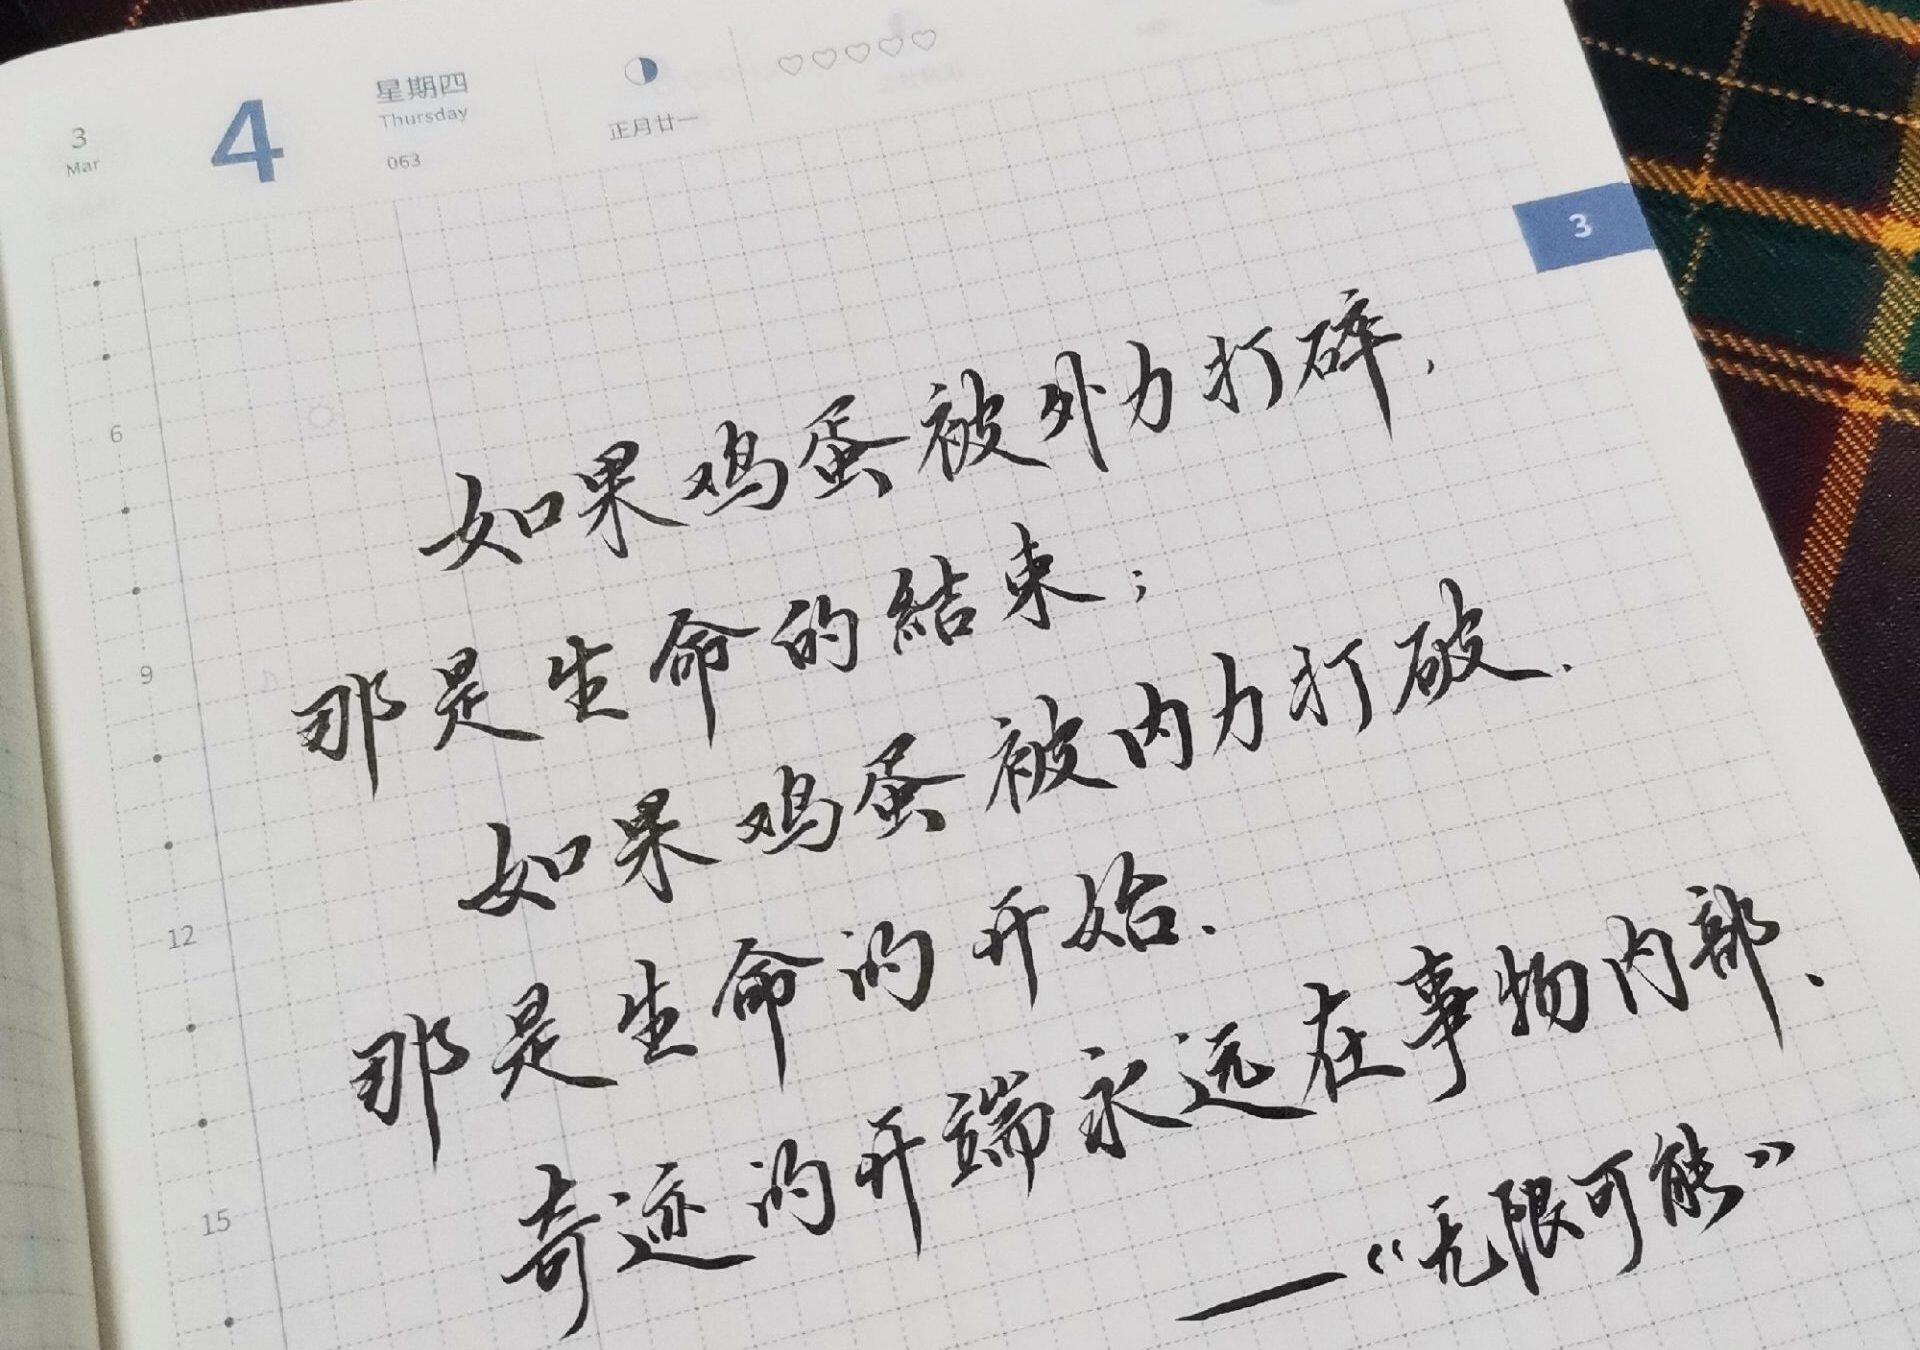 3
Mar
4
星期四
Thursday
063
正月廿一
3
6
9
12
15
如果鸡蛋被外力打碎,
那是生命的結束;
如果鸡蛋被内力打破.
那是生命的开始.
奇迹的开端永远在事物内部.
——《无限可能》